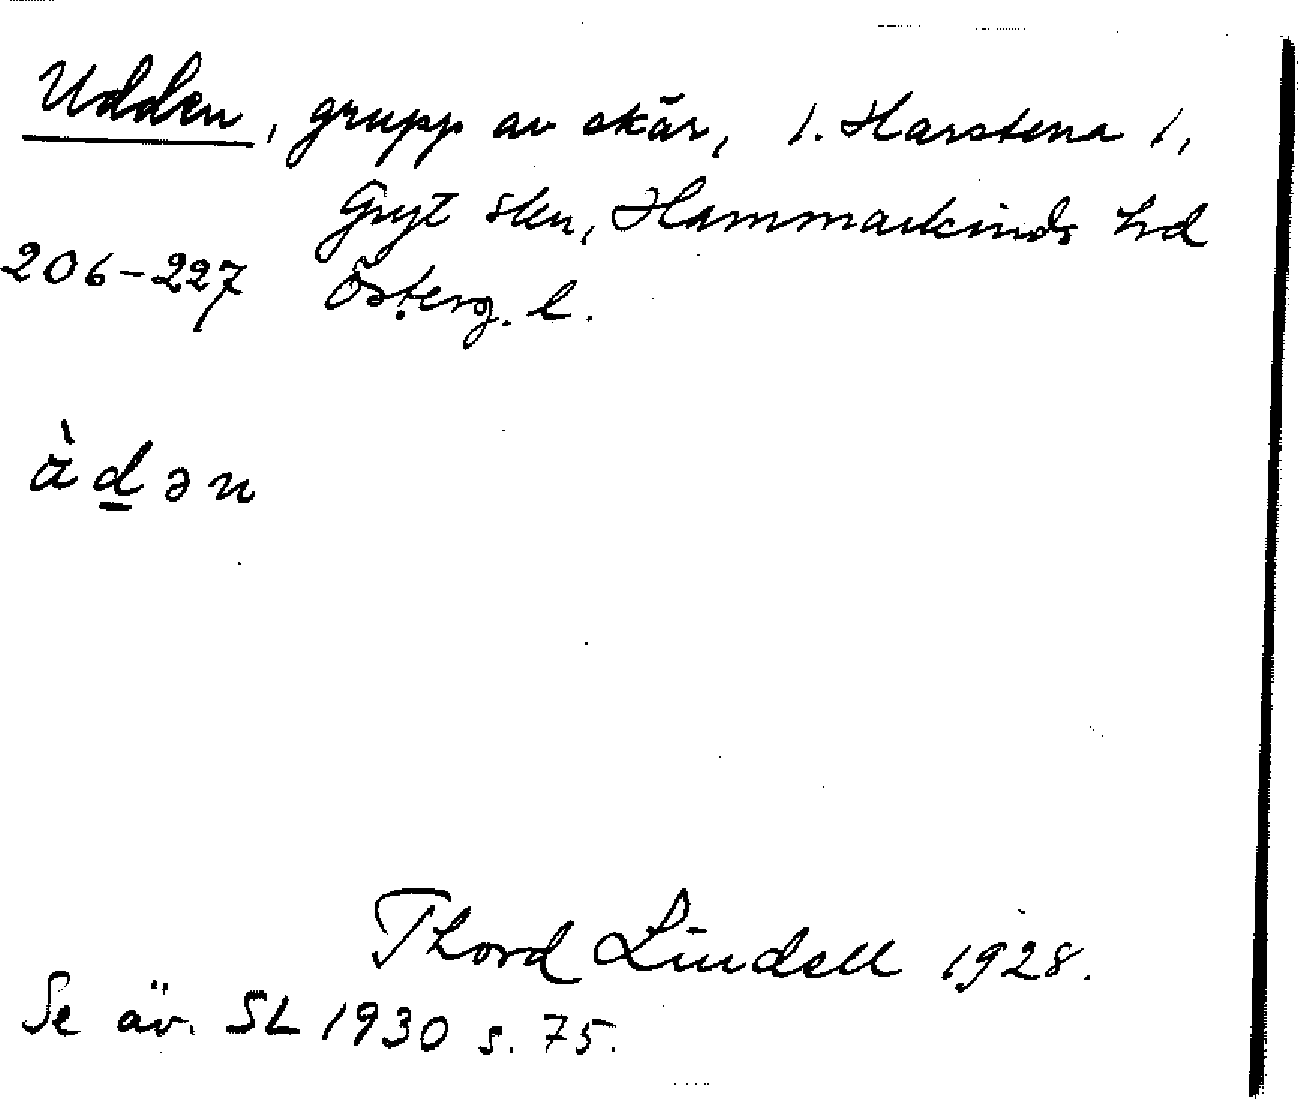 Udden, grupp av skär, 1. Harstena 1,
Gryt skn, Hammarkinds hd
206-227 Österg. l.
àdən
Thord Lindell 1928.
Se äv. SL 1930 s. 75.